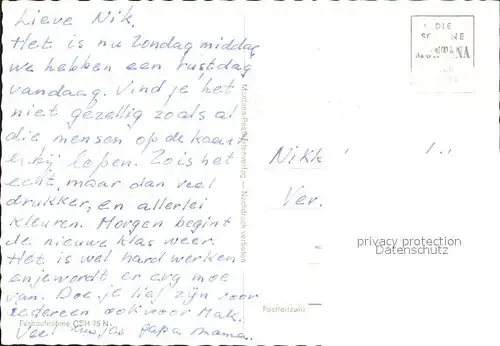 Lieve Nik,
Het is nu Zondag middag
we hebben een rustdag
vandaag. Vind je het
niet gezellig zoals al
die mensen op de kaart
erbij lopen. Zo is het
echt, maar dan veel
drukker, en allerlei
kleuren. Morgen begint
de nieuwe klas weer.
Het is wel hard werken
enjewordt er erg moe
van. Doe je lief zijn voor
iedereen ook voor Mak.
Veel kusjes papa mama.
Farbaufnahme CSH 75 N
Nachdruck verboten
DIE
MONTANA
Nikk
Ver.
privacy protection
Datenschutz
Postleitzahl